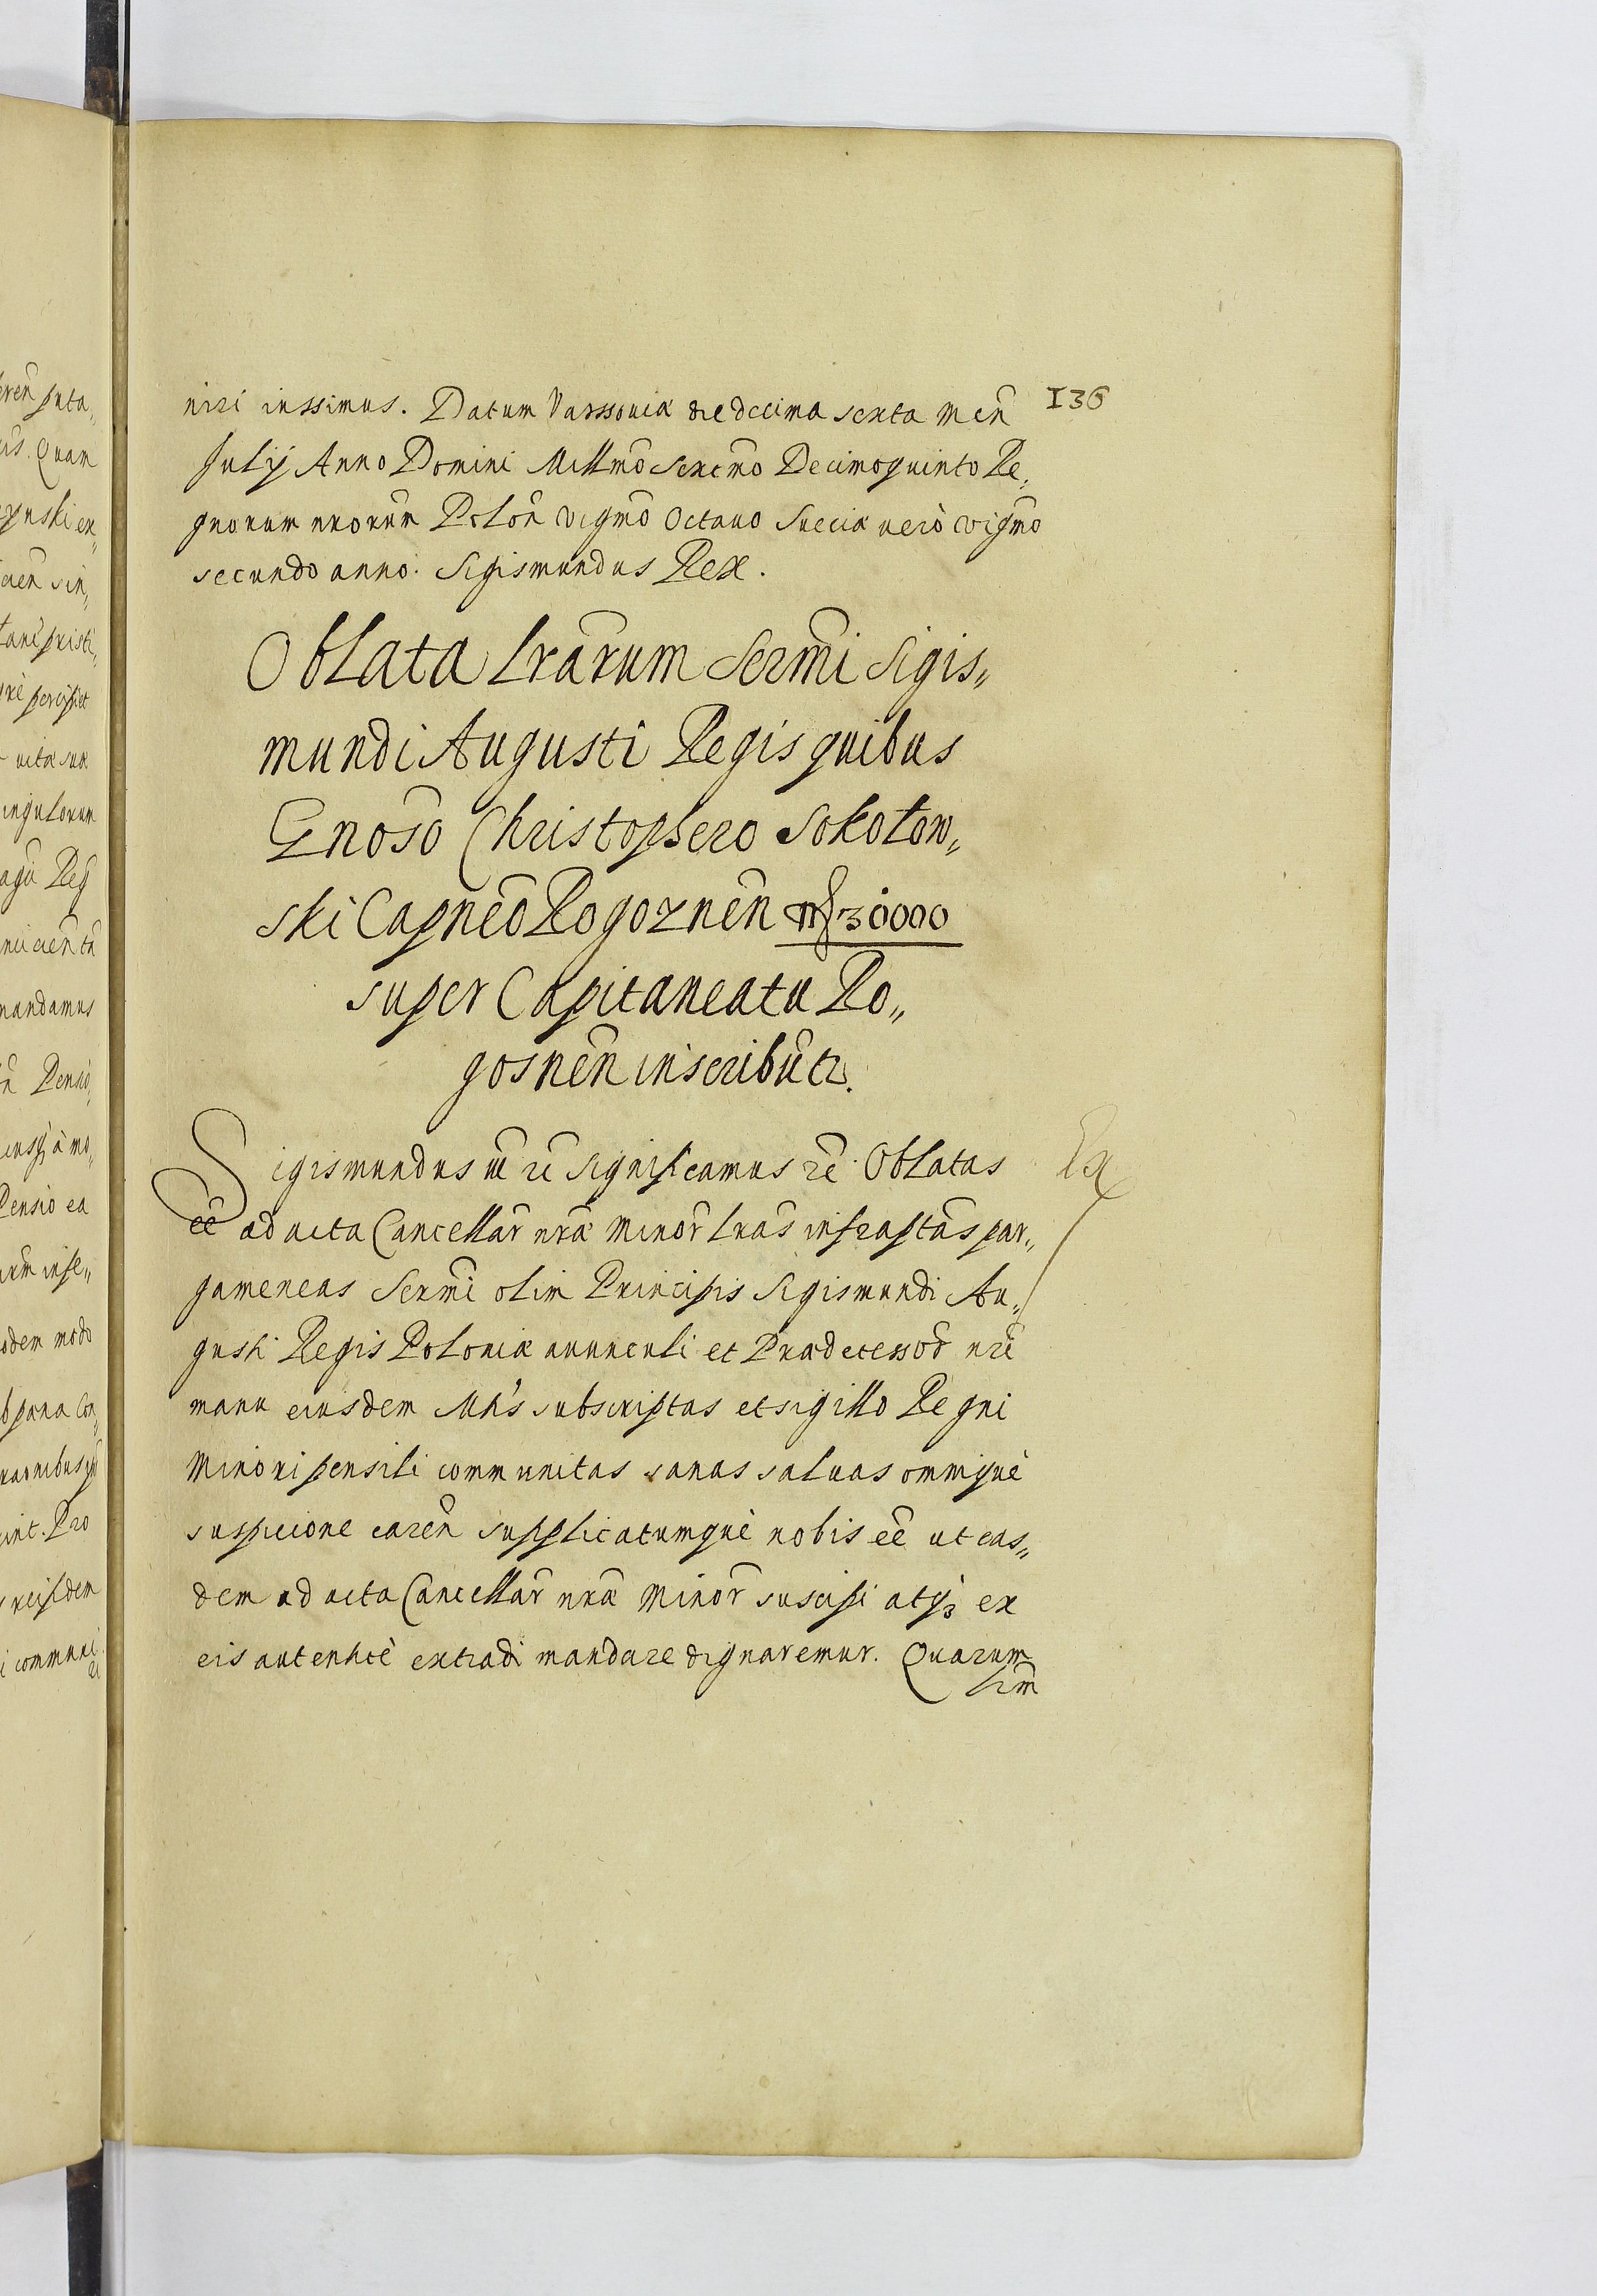 136
niri iussimus. Datum Varssouiæ die decima sexta Men̄
Julij Anno Domini Millmo Sexcmo Decimoquinto Re,
gnorum nrorum Polon̄ vigmo Octauo Sueciæ uerò vigmo
secundo anno. Sigismundus Rex.
Oblata Lrarum Sermi Sigis„
mundi Augusti Regis quibus
Gnoso Christophero Sokołow„
ski Capneo Rogoznen̄ 30000
super Capitaneatu Ro„
gosnen̄ inscribūtr.
Sigismundus etc Significamus etc Oblatas
eē ad acta Cancellar̄ nræ Minor̄ Lras infraptas par„
gameneas Sermi olim Principis Sigismundi Au„
gusti Regis Poloniæ auunculi et Prædecessor̄ nri
manu eiusdem Mtis subscriptas et sigillo Regni
Minori pensili communitas sanas saluas omniquè
suspicione caren̄ supplicatumquè nobis eē ut eas„
dem ad acta Cancellar̄ nræ Minor̄ suscipi atqз ex
eis autenticè extradi mandare dignaremur. Quarum